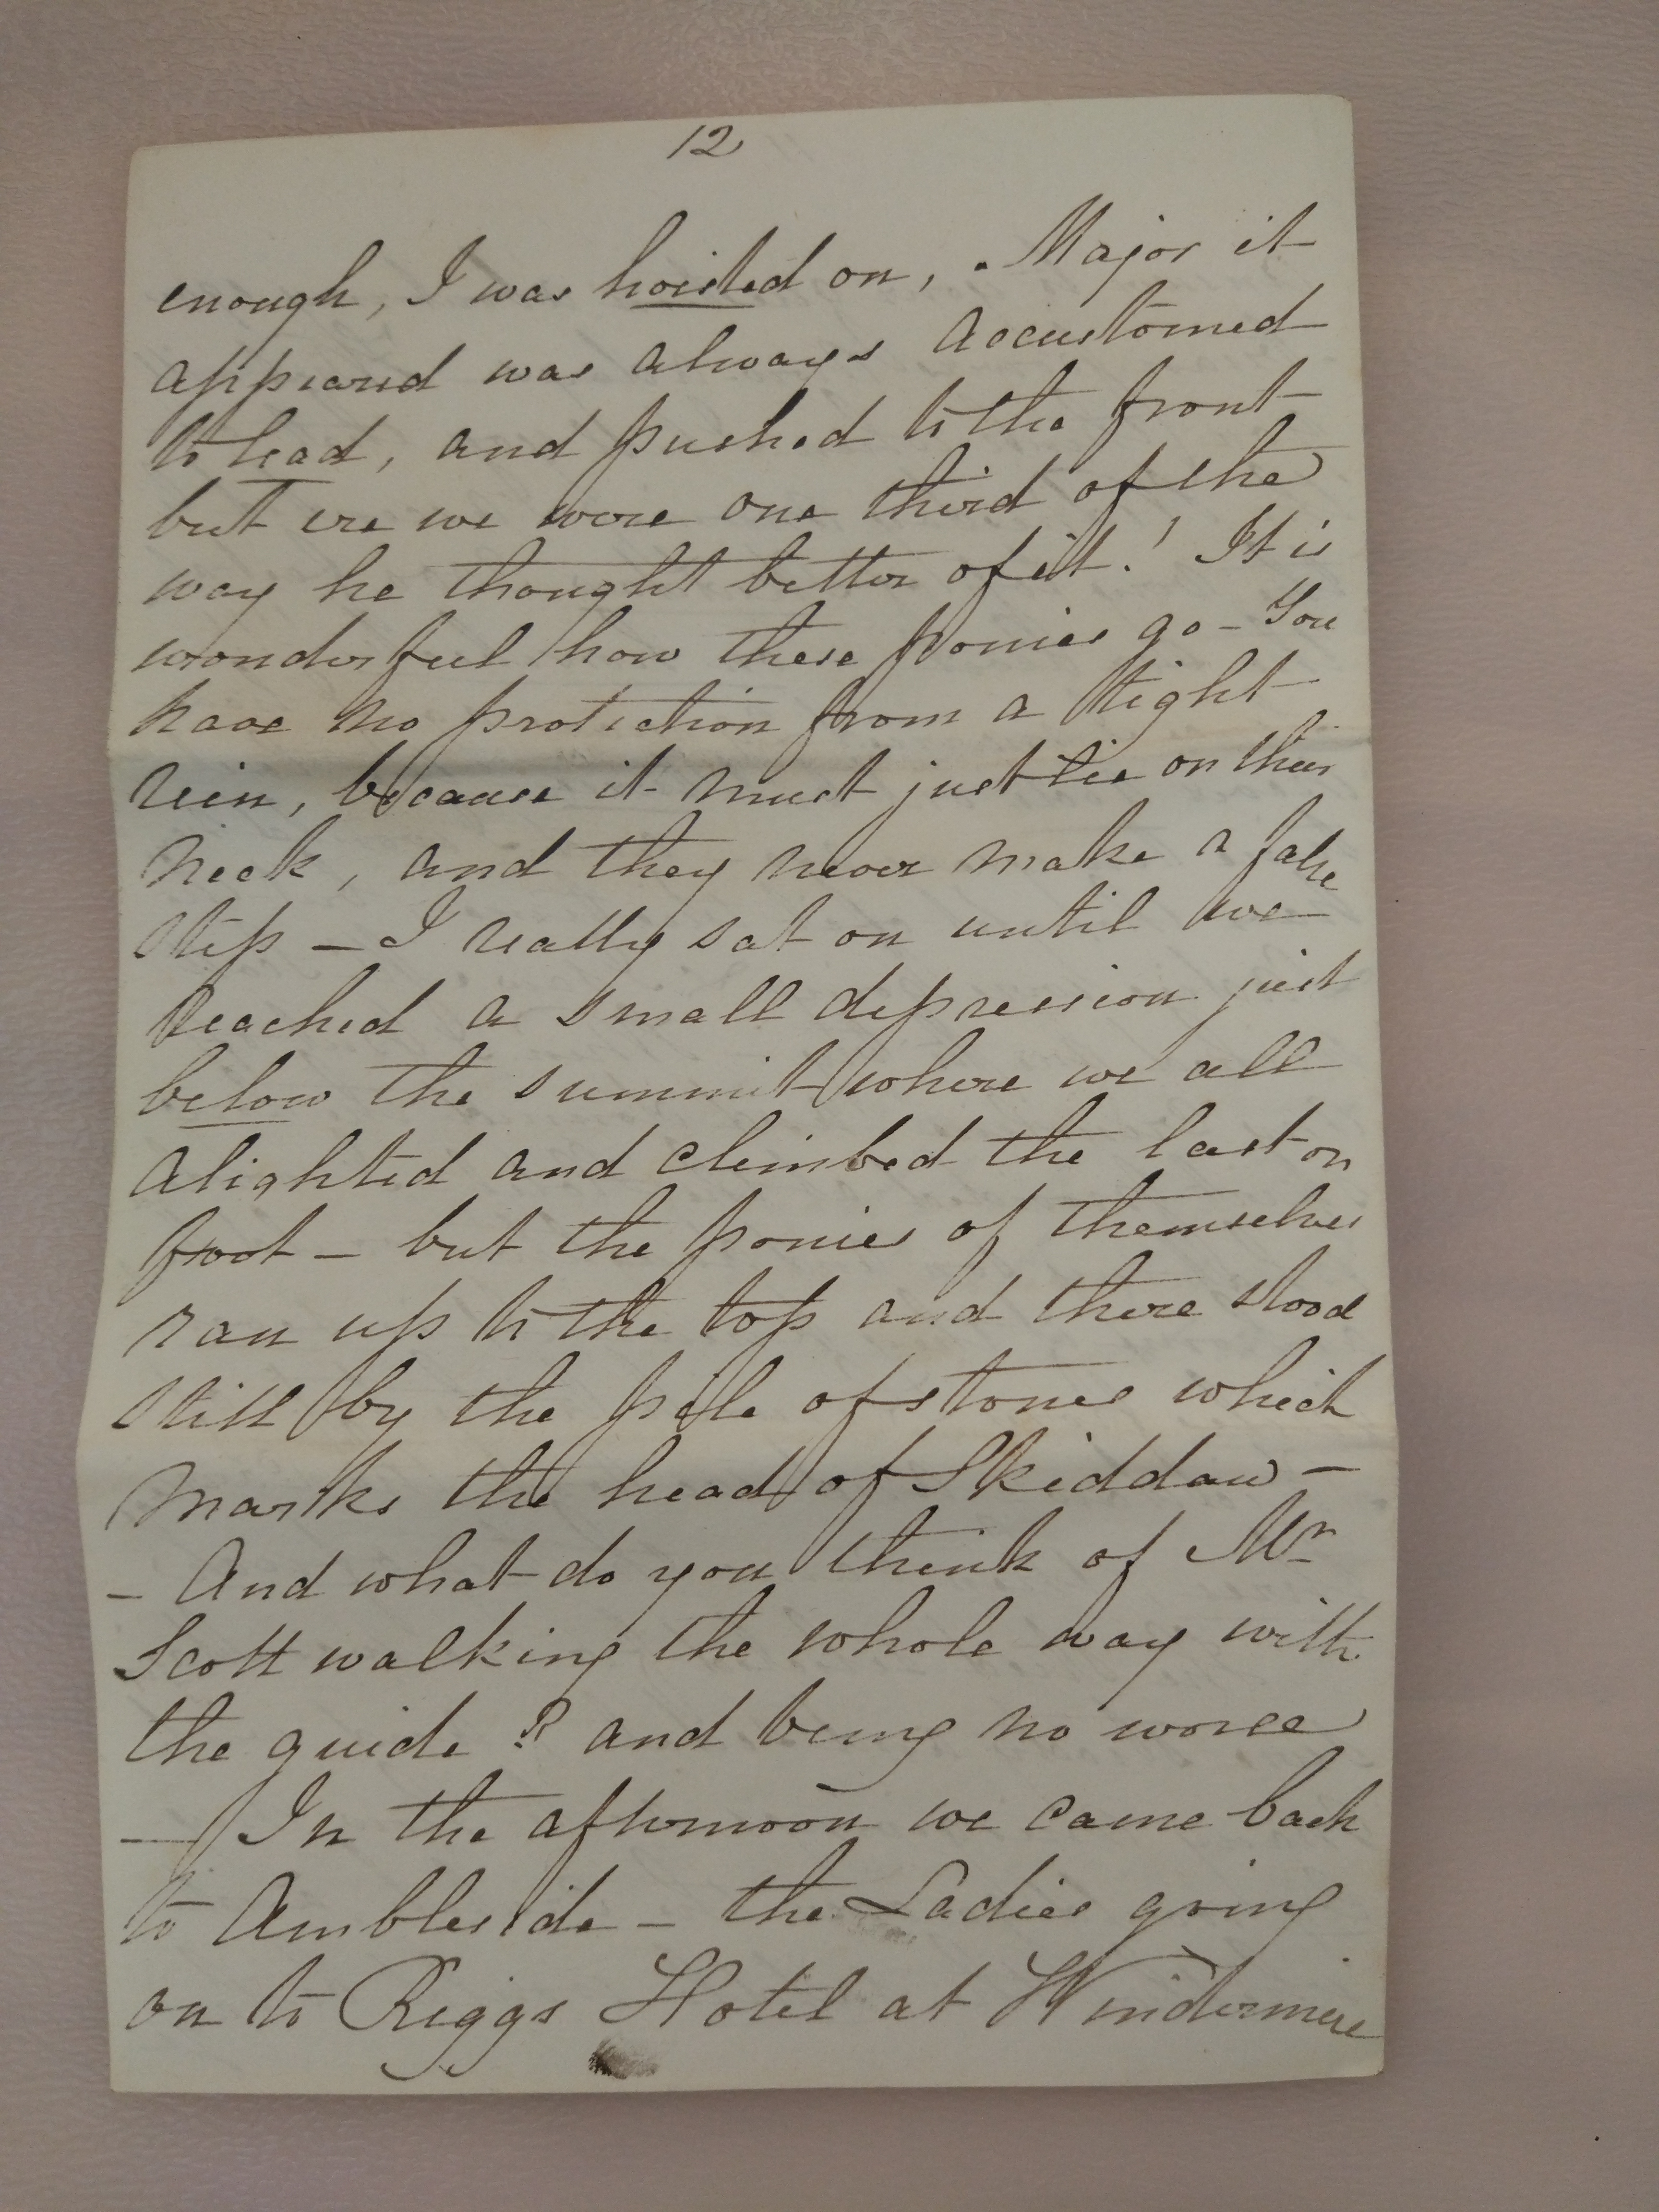 12
enough, I was hoisted on, . Major it
appeared was always accustomed
to lead, and pushed to the front
but ere we were one third of the
way he thought better of it! It is
wonderful how these ponies go - You
have no protection from a tight
rein, because it must just lie on their
neck, and they never make a false
step — I really sat on until we
reached a small depression just
below the summit where we all
alighted and climbed the last on
foot — but the ponies of themselves
ran up to the top and there stood
still by the pile of stones which
marks the head of Skiddaw —
— And what do you think of Mr
Scott walking the whole way with
the guide? and being no worse
— In the afternoon we came back
to Ambleside — the Ladies going
on to Riggs Hotel at Windermere